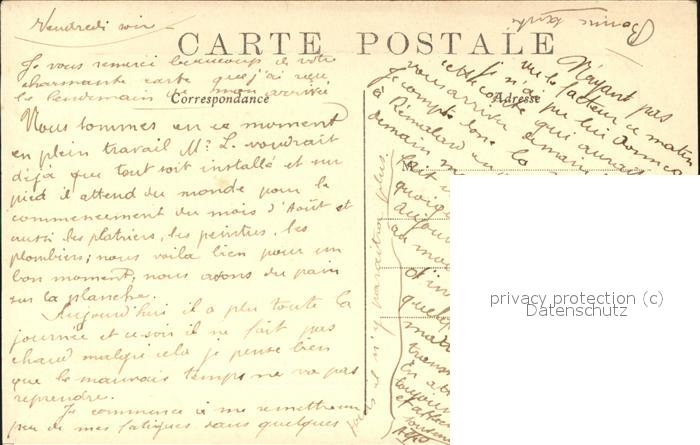 Vendredi soir
Bonne santé
CARTE POSTALE
Correspondance
Adresse
Je vous remercie beaucoup de votre
charmante carte que j'ai reçu
le lendemain de mon arrivée
Nous sommes en ce moment
en plein travail Mr L. voudrait
déjà que tout soit installé et sur
pied il attend du monde pour le
commencement du mois d'Août et
aussi les platriers, les peintres, les
plombiers; nous voila bien pour un
bon moment, nous avons du pain
sur la planche.
Aujourd'hui il a plu toute la
journée et ce soir il ne fait pas
chaud malgré cela je pense bien
que le mauvais temps ne va pas
reprendre.
Je commence à me remettre un
peu de mes fatigues dans quelques
jours il n'y paraitra plus.
N'ayant pas
vu le facteur ce matin
je n'ai pu lui donner
cette carte qui aurait
vous arriver demain
Je compte donc la
à Rémalard
demain
M
fait
quoique
aujour
au
d'in
quelq
privacy protection (c)
Datenschutz